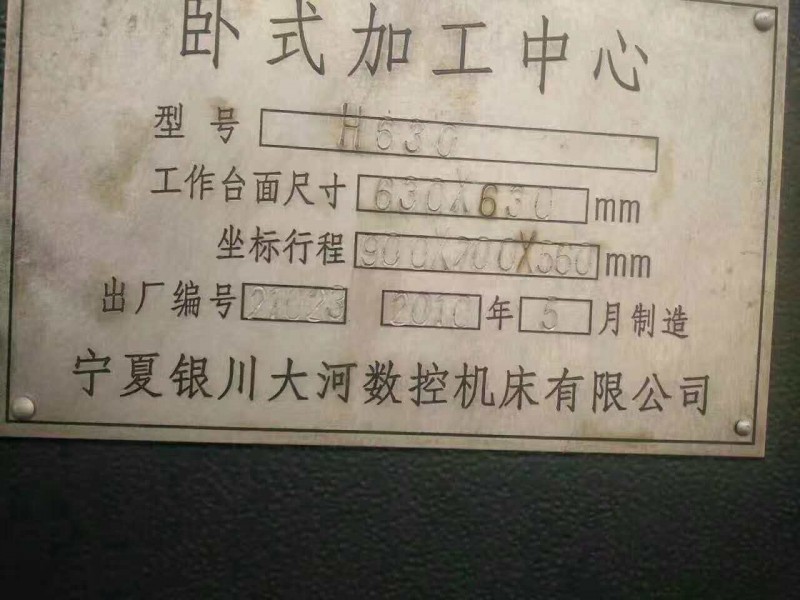 卧式加工中心
型号 H630
工作台面尺寸 630X630 mm
坐标行程 900X700X560 mm
出厂编号 21023 2010年5月制造
宁夏银川大河数控机床有限公司